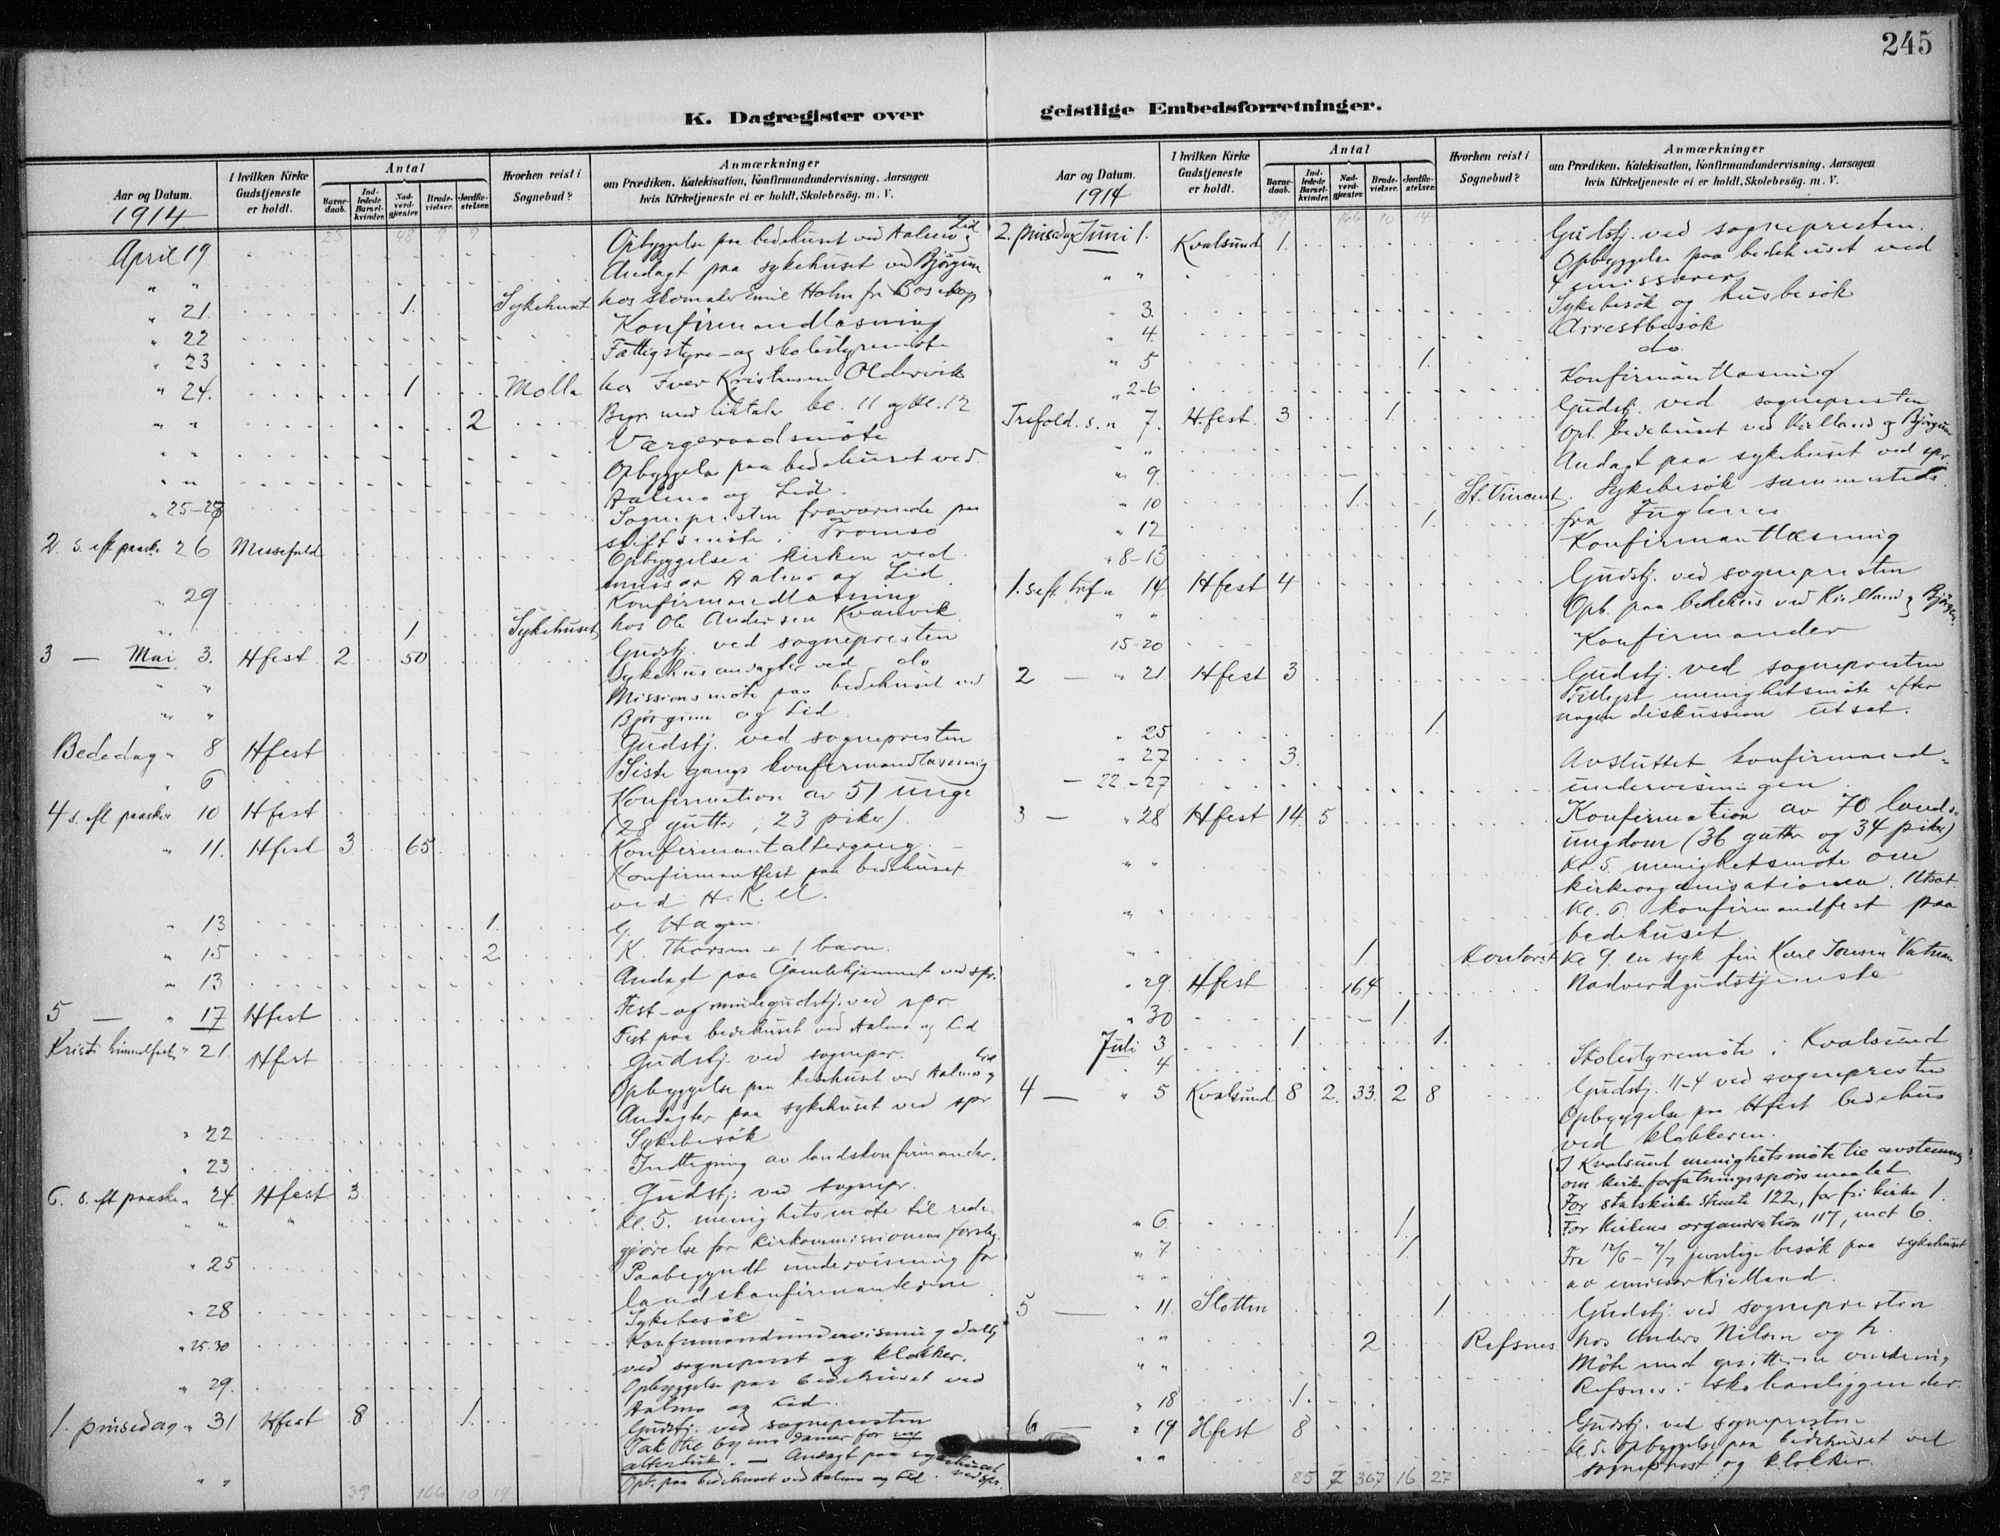 245
K. Dagregister over geistlige Embedsforretninger.
Aar og Datum.
1914
I hvilken Kirke Gudstjeneste er holdt.
Antal
Barnedaab.
Indledede Barselkvinder.
Nadverdgjester.
Brudevielser.
Jordfæstelser.
Hvorhen reist i Sognebud?
Anmærkninger
om Prædiken, Katekisation, Konfirmandundervisning, Aarsagen
hvis Kirketjeneste ei er holdt, Skolebesög, m. V.
23 48 9 9
April 19 Opbyggelse paa bedehuset ved Aalmo og Lid
" " Andagt paa sykehuset ved Björgum
" 21. 1. Sykehuset hos skomaker Emil Holm fr Bosekop
" 22 Konfirmandlæsning
" 23 Fattigstyre- og skolestyremöte
" 24. 1 Molla hos Iver Kristensen Oldervik
" " 2 Begr. med liktale kl. 11 og kl. 12
" " Værgeraadsmöte
" " Opbyggelse paa bedehuset ved
Aalmo og Lid.
" 25-28 Sognepresten fraværende paa
stiftsmöte i Tromsö
2. s. eft paaske 26 Messefald Opbyggelse i kirken ved
Aalmo og Lid.
" 29 Konfirmandlæsning
" 1 Sykehuset hos Ole Andersen Kvanvik
3 — Mai 3. Hfest 2 50 Gudstj. ved sognepresten
" " Sykehusandagter ved do
" " Missionsmöte paa bedehuset ved
Björgum og Lid.
Bededag " 8 Hfest Gudstj. ved sognepresten
" 6 Siste gangs konfirmandlæsning
4 s. eft paaske 10 Hfest Konfirmation av 51 unge
(28 gutter, 23 piker).
" 11. Hfest 3 65 Konfirmantaltergang. —
Konfirmantfest paa bedehuset
ved H. K. U.
" 13 1. G. Hagen.
" 15 2 K. Thorsen + 1 barn.
" 13 Andagt paa Gamlehjemmet ved spr.
5 — " 17 Hfest Fest- og mindegudstj. ved spr.
Fest paa bedehuset ved Aalmo og Lid
Kristi himmelfartsd. " 21. Hfest Gudstj. ved sognepr.
Opbyggelse paa bedehuset ved Aalmo og Lid
Andagter paa sykehuset ved spr
" 22 Sykebesök
" 23 Indtegning av landskonfirmander.
6. s. eft paaske " 24. Hfest 3 Gudstj. ved sognepr.
" " " Kl. 5. menighetsmöte til rede-
gjörelse for kirkommissionens forslag.
" 25 Paabegyndt undervisning for
landskonfirmanterne
" 28 Sykebesök
" 25-30 Konfirmandundervisning
ved sogneprest og klokker.
" 29. Opbyggelse paa bedehuset ved
Aalmo og Lid.
1. pinsedag " 31 Hfest 8 1. Gudstj. ved sognepresten
Tak til byens damer for ny
alterduk. — Andagt paa sykehuset ved spr.
" " Opb. paa bedehuset ved Aalmo og Lid.
39 166 10 14
Aar og Datum.
1914
I hvilken Kirke Gudstjeneste er holdt.
Antal
Barnedaab.
Indledede Barselkvinder.
Nadverdgjester.
Brudevielser.
Jordfæstelser.
Hvorhen reist i Sognebud?
Anmærkninger
om Prædiken, Katekisation, Konfirmandundervisning, Aarsagen
hvis Kirketjeneste ei er holdt, Skolebesög, m. V.
39 166 10 14
2. pinsedag Juni 1. Kvalsund 1. Gudstj. ved sognepresten.
" " Opbyggelse paa bedehuset ved
emissærer
" 3. Sykebesök og husbesök
" 4. Arrestbesök
" 5 1. do
" 2-6 Konfirmantlæsning
Trefold. s. " 7. H.fest. 3 1 Gudstj. ved sognepresten
" Opb. bedehuset ved Kielland og Björgum
" 9. Andagt paa sykehuset ved spr.
" 10 1. St. Vincent. Sykebesök sammesteds.
" 12 1. fra Fuglenes
" 8-13 Konfirmantlæsning
1. s eft tref " 14 Hfest 4 Gudstj. ved sognepresten
" " Opb. paa bedehus ved Kielland og Björgum.
15-20 Konfirmander
2 — " 21 Hfest 3 Gudstj. ved sognepresten
Tillyst menighetsmöte efter
nogen diskussion utsat.
" 25 1
" 27 3.
— 22-27 Avsluttet konfirmand-
undervisningen
3 — " 28 Hfest 14. 5 Konfirmation av 70 lands-
ungdom (36 gutter og 34 piker)
" " Kl. 5 menighetsmöte om
kirkeorganisationen. Utsat.
" " Kl. 6. konfirmandfest paa
bedehuset
" 1 Kontoret Kl 9. en syk fru Karl Jonsen Vatnan
" 29 Hfest 164 Nadverdgudstjeneste
" 30 1.
Juli 3 1. 1.
" 4 Skolestyremöte i Kvalsund
4 — " 5 Kvalsund 8 2. 33. 2 8 Gudstj. 11-4 ved sognepresten
Opbyggelse paa Hfest bedehus
ved klokkeren.
I Kvalsund menighetsmöte til avstemning
om kirkeforfatningsspörsmaalet.
For statskirke stemte 122, for fri kirke 1.
" 6. 1. For kirkens organisation 117, mot 6.
" 7 1. Fra 12/6 - 7/7 jevnlige besök paa sykehuset
" " av emissær Kielland.
5 — " 11. Slotten 1 Gudstj. ved sognepresten
" " 2 Refsnes hos Anders Nilsen og h.
" " Möte med
Refsnes i
" 18 1.
6 — " 19 Hfest 8 Gudstj. ved sognepresten
" " kl. 5. opbyggelse paa bedehuset ved
sogneprest og klokker.
85 7 367 16 27